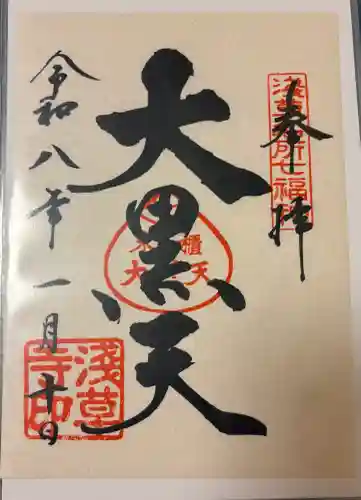 奉拝
浅草名所七福神
大黒天
米櫃
大黒天
令和八年一月十日
浅草
寺印